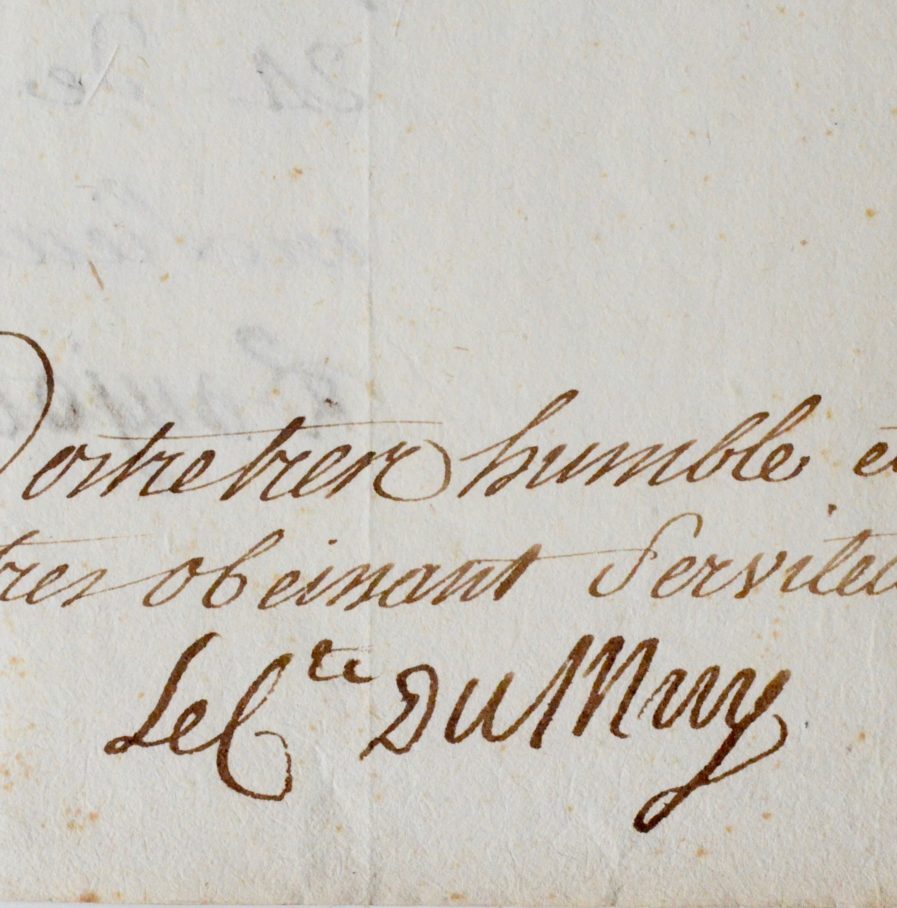 Vostre tres humble et
tres obeissant Serviteu
Le Cte Du Muy